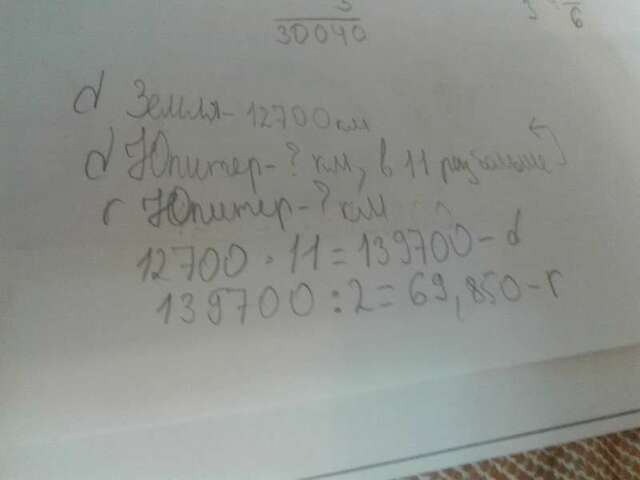 30040
6
d Земля - 12700 км
d Юпитер - ? км, в 11 раз больше
r Юпитер - ? км
12700 · 11 = 139700 - d
139700 : 2 = 69,850 - r